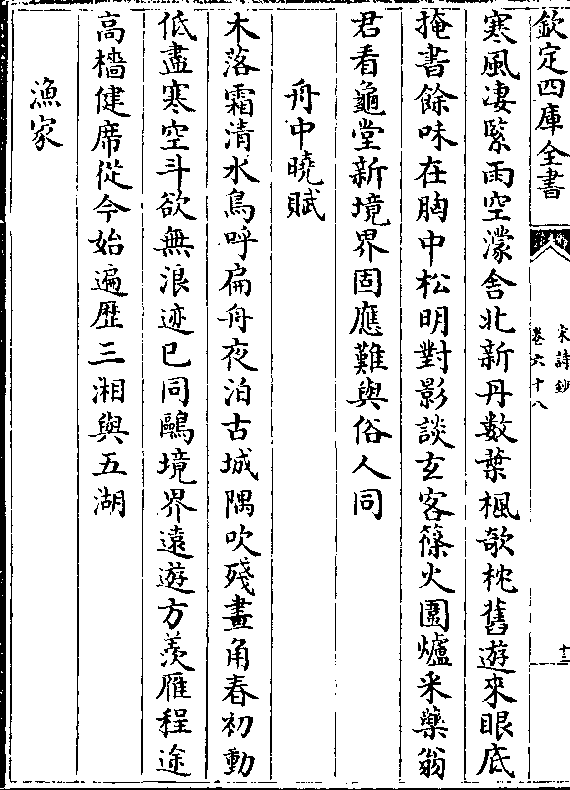 欽定四庫全書
宋詩鈔
卷六十八
十三
寒風凄緊雨空濛舎北新丹數葉楓欹枕舊遊來眼底
掩書餘味在胸中松明對影談玄客篠火圍爐采藥翁
君看龜堂新境界固應難與俗人同
舟中曉賦
木落霜清水鳥呼扁舟夜泊古城隅吹殘畫角春初動
低盡寒空斗欲無浪迹已同鷗境界遠遊方羡雁程途
高檣健席從今始遍歴三湘與五湖
漁家